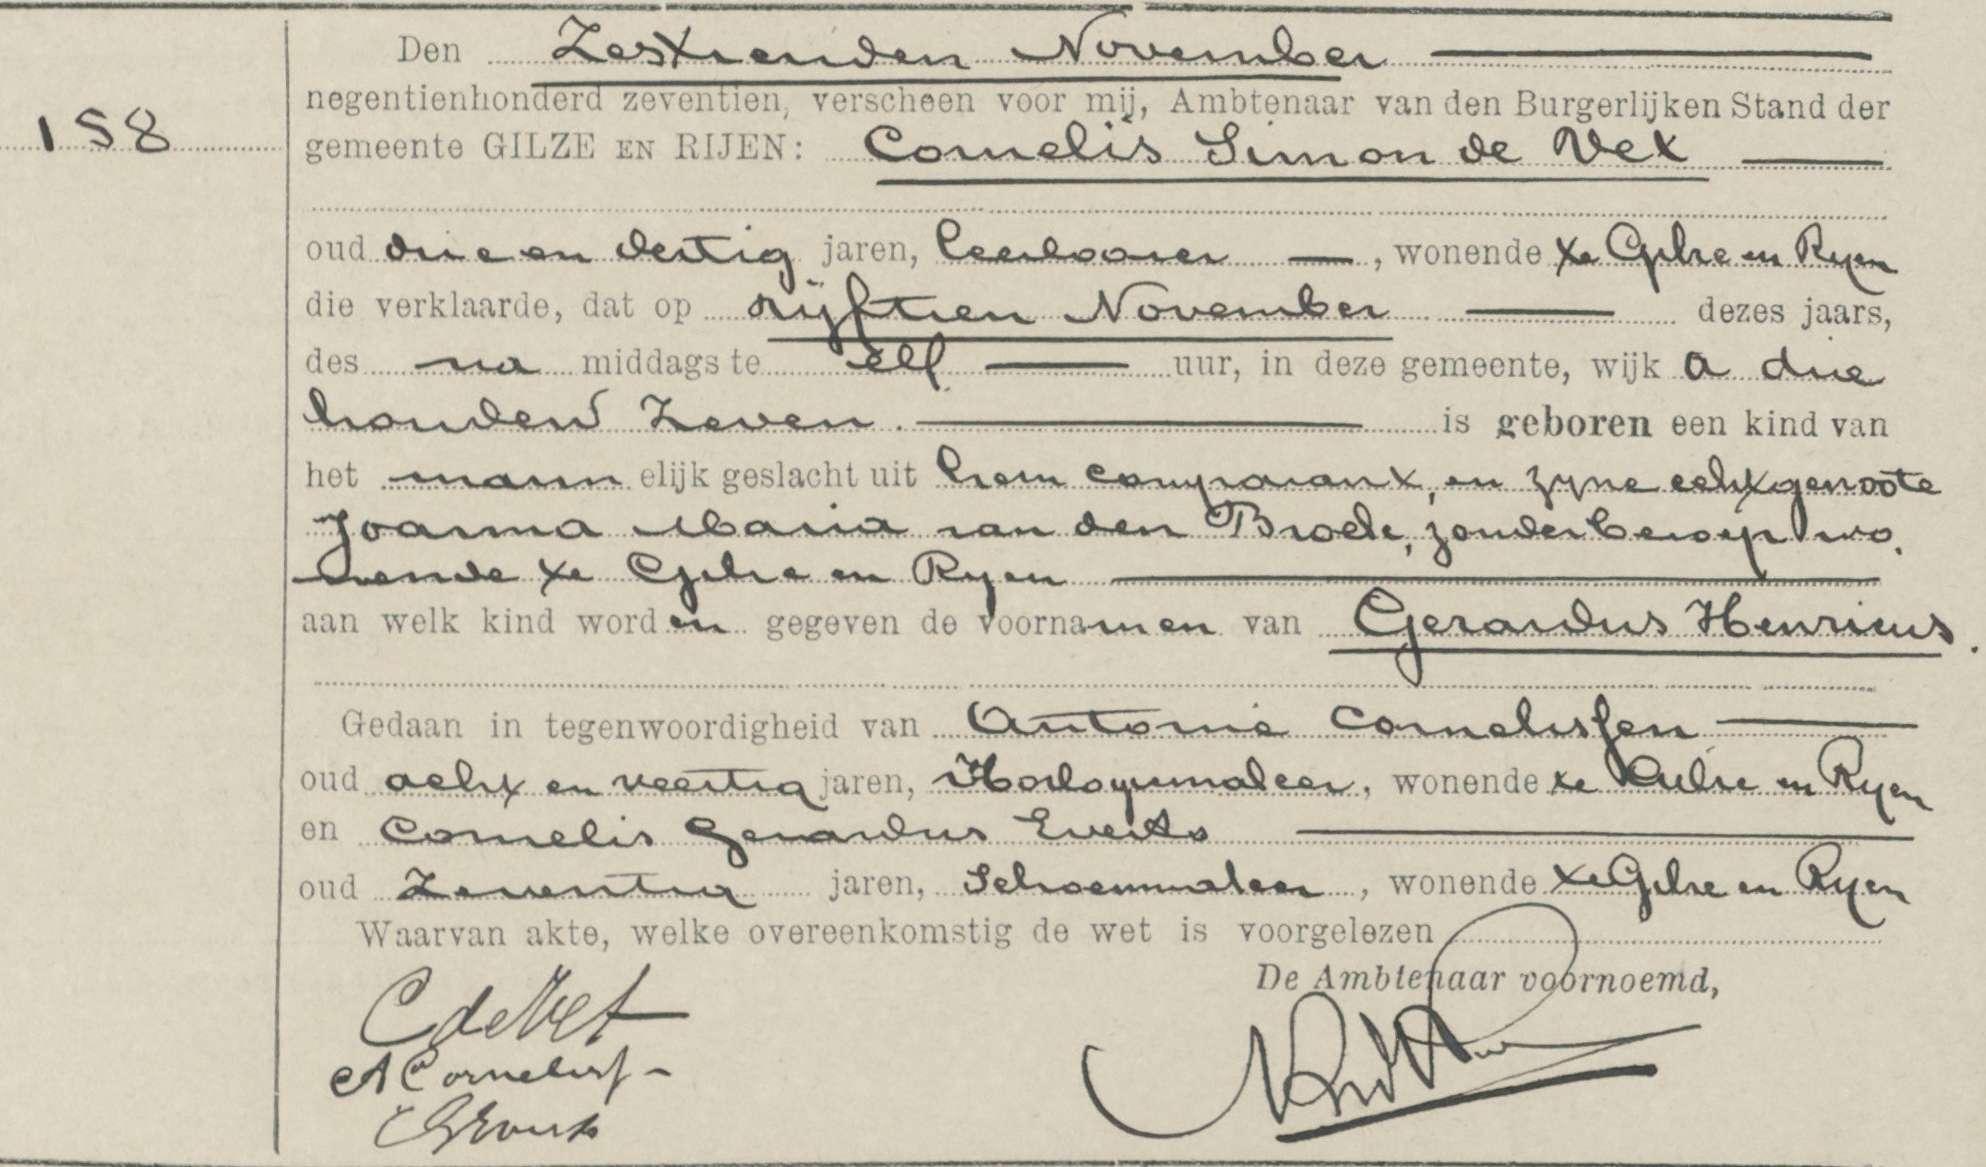 Den Zestienden November
negentienhonderd zeventien, verscheen voor mij, Ambtenaar van den Burgerlijken Stand der
158
gemeente GILZE EN RIJEN: Cornelis Simon de Vet
oud drie en dertig jaren, leerlooier, wonende te Gilze en Ryen
die verklaarde, dat op vijftien November dezes jaars,
des na middags te elf uur, in deze gemeente, wijk A drie
honderd Zeven. is geboren een kind van
het mannelijk geslacht uit hem comparant, en zyne echtgenoote
Joanna Maria van den Broek, zonder beroep wo
nende te Gilze en Ryen
aan welk kind worden gegeven de voornamen van Gerardus Henricus.
Gedaan in tegenwoordigheid van Antonie Cornelissen
oud acht en veertig jaren, Horlogiemaker, wonende te Gilze en Ryen
en Cornelis Gerardus Everts
oud Zeventig jaren, Schoenmaker, wonende te Gilze en Ryen
Waarvan akte, welke overeenkomstig de wet is voorgelezen
De Ambtenaar voornoemd,
C de Vet
A Corneliss